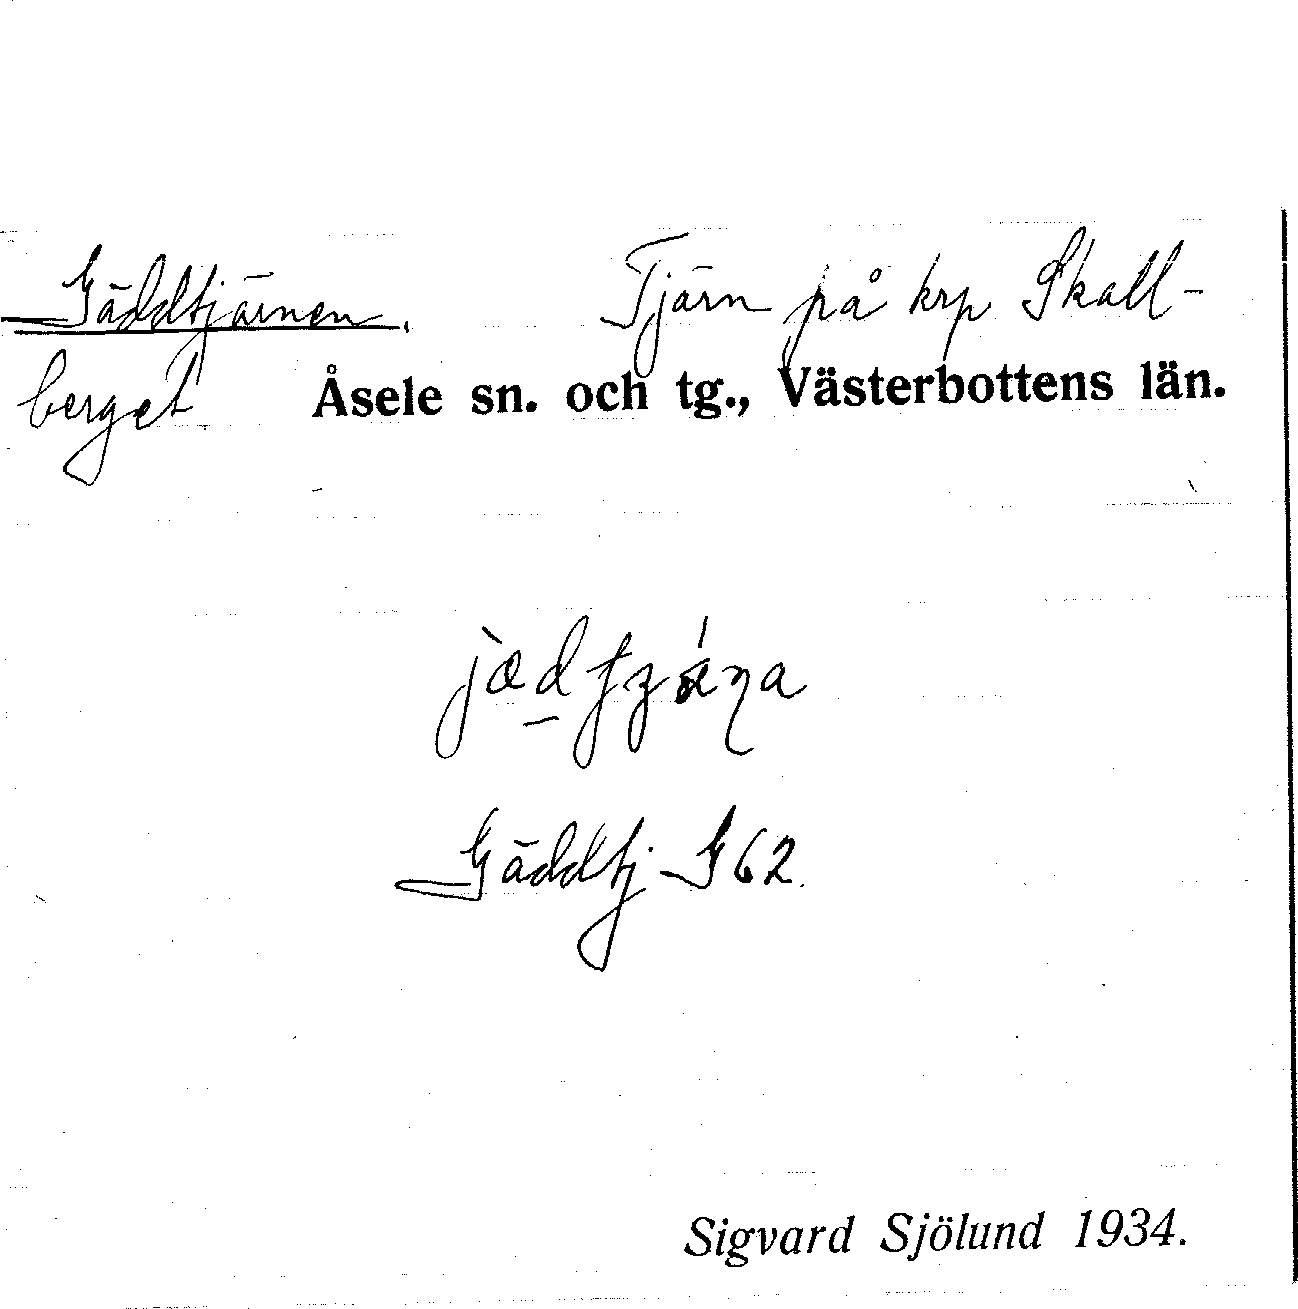 Gäddtjärnen. Tjärn på krp Skall-
berget Åsele sn. och tg., Västerbottens län.
Gäddtj G 62.
Sigvard Sjölund 1934.